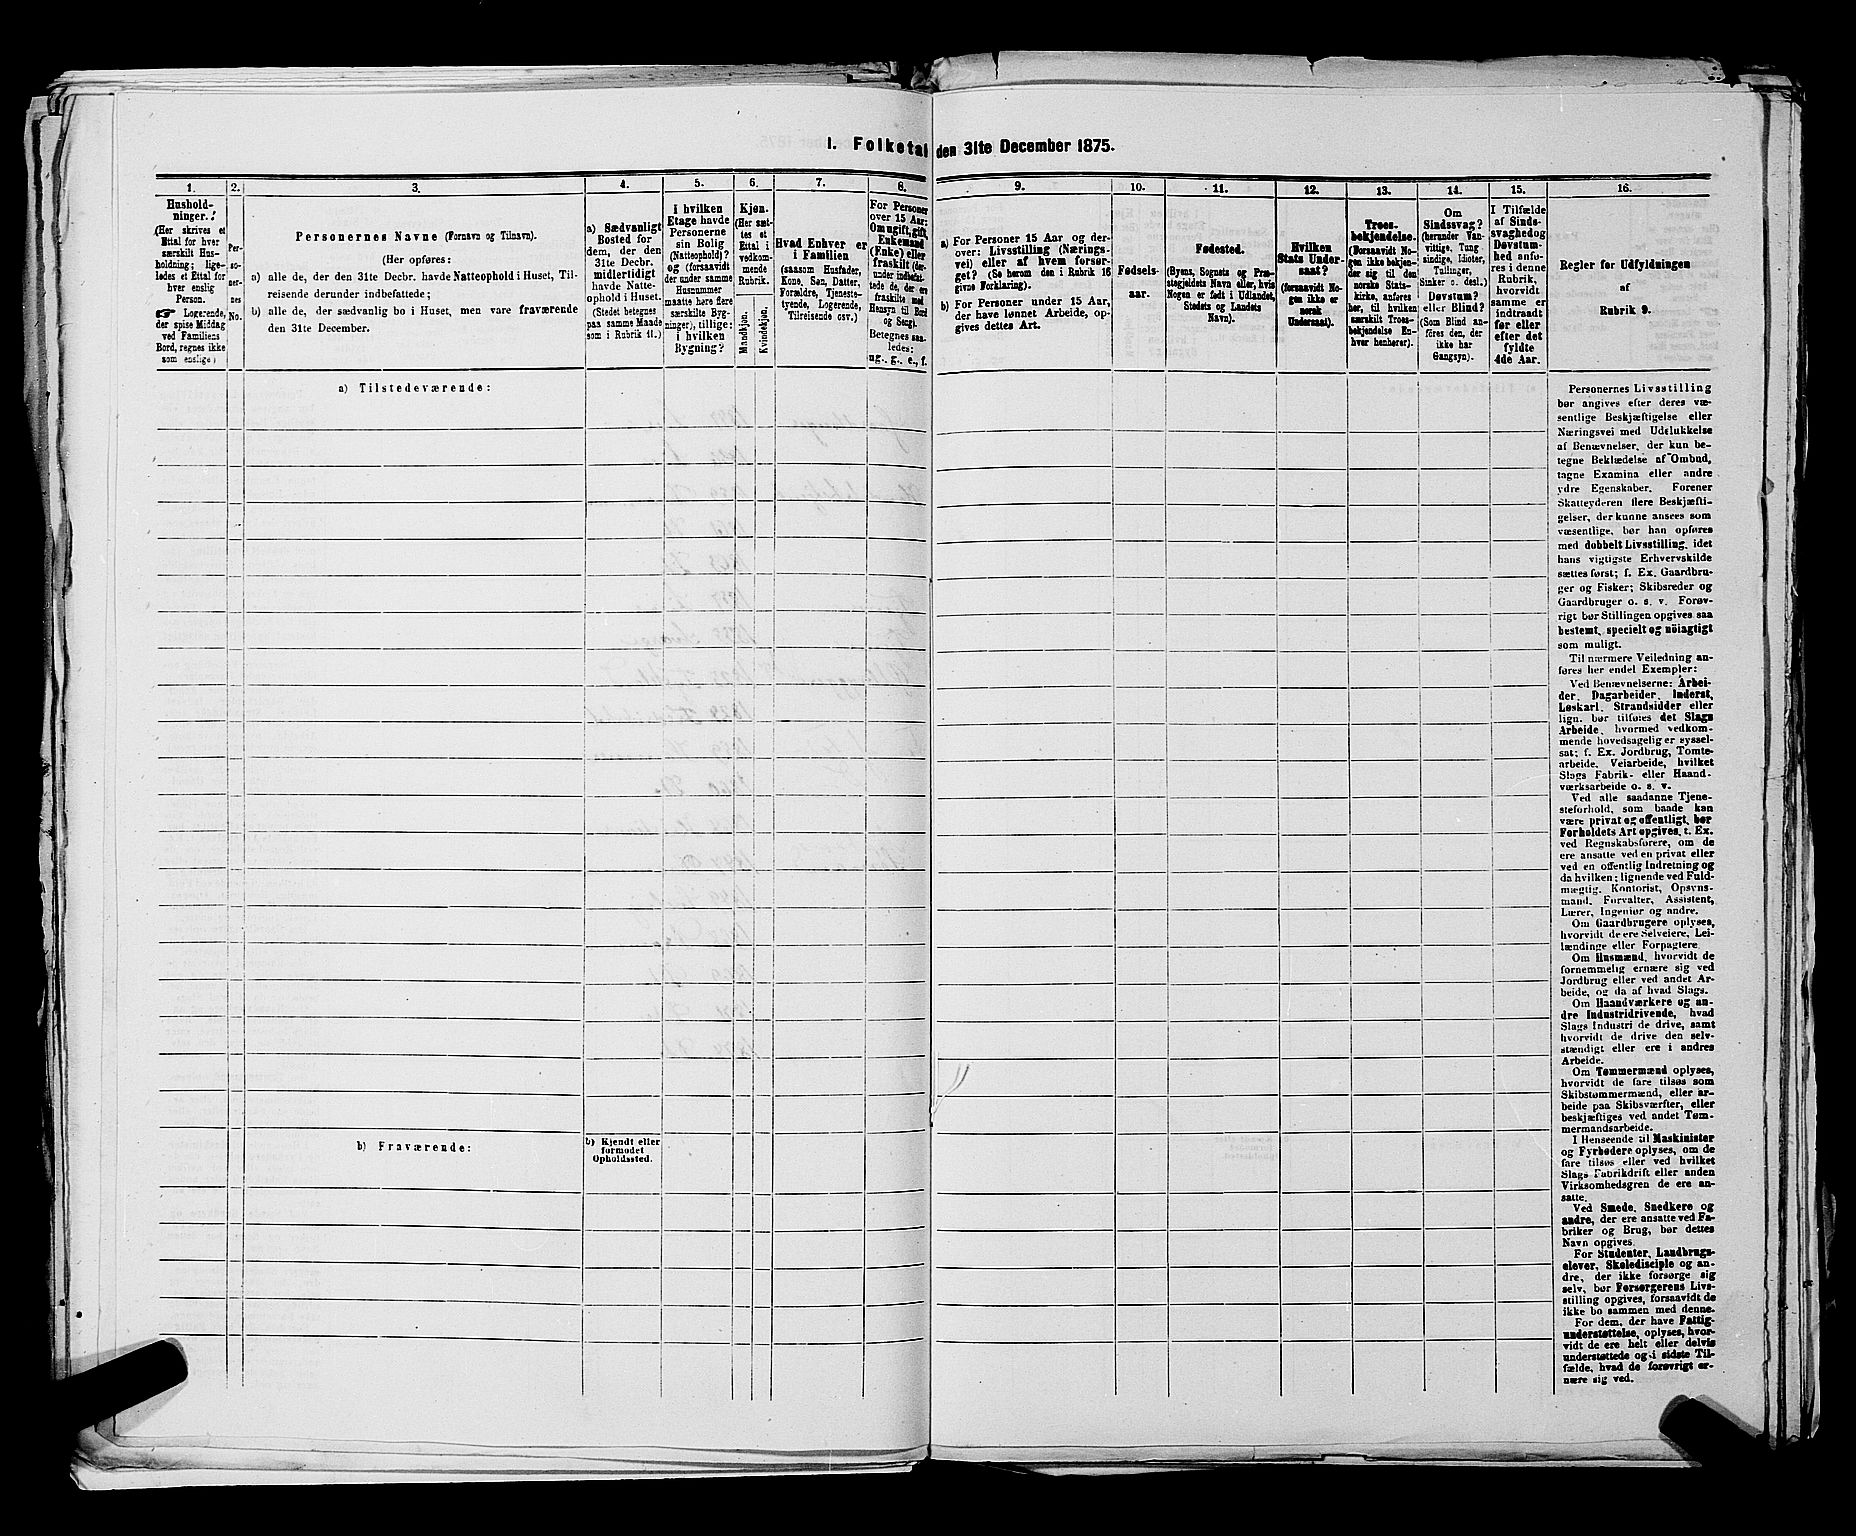 I. Folketal den 31te December 1875.
1.
Hushold-
ninger.
(Her skrives et
Ettal for hver
særskilt Hus-
holdning; lige-
ledes et Ettal for
hver enslig
Person.
☛ Logerende,
der spise Middag
ved Familiens
Bord, regnes ikke
som enslige)
2.
Per-
so-
ner-
nes
No.
3.
Personernes Navne (Fornavn og Tilnavn).
(Her opføres:
a) alle de, der den 31te Decbr. havde Natteophold i Huset, Til-
reisende derunder indbefattede;
b) alle de, der sædvanlig bo i Huset, men vare fraværende
den 31te December.
4.
a) Sædvanligt
Bosted for
dem, der den
31te Decbr.
midlertidigt
havde Natte-
ophold i Huset.
(Stedet betegnes
paa samme Maade
som i Rubrik 11.)
5.
I hvilken
Etage havde
Personerne
sin Bolig
(Natteophold)?
og (forsaavidt
der under samme
Husnummer
maatte høre flere
særskilte Byg-
ninger), tillige:
i hvilken
Bygning?
6.
Kjøn.
(Her sæt-
tes et
Ettal i
vedkom-
mende
Rubrik.
Mandkjøn.
Kvindekjøn.
7.
Hvad Enhver er
i Familien
(saasom Husfader,
Kone, Søn, Datter,
Forældre, Tjeneste-
tyende, Logerende,
Tilreisende osv.)
8.
For Personer
over 15 Aar:
Om ugift, gift,
Enkemand
(Enke) eller
fraskilt (der-
under indbefat-
tede de, der ere
fraskilte med
Hensyn til Bord
og Seng).
Betegnes saa-
ledes:
ug., g., e., f.
9.
a) For Personer 15 Aar og der-
over: Livsstilling (Nærings-
vei) eller af hvem forsør-
get? (Se herom den i Rubrik 16
givne Forklaring).
b) For Personer under 15 Aar,
der have lønnet Arbeide, op-
gives dettes Art.
10.
Fødsels-
aar.
11.
Fødested.
(Byens, Sognets og Præ-
stegjeldets Navn eller, hvis
Nogen er født i Udlandet,
Stedets og Landets
Navn).
12.
Hvilken
Stats Under-
saat?
(forsaavidt No-
gen ikke er
norsk
Undersaat).
13.
Troes-
bekjendelse.
(Forsaavidt No-
gen ikke bekjen-
der sig til den
norske Stats-
kirke, anføres
her, til hvilken
særskilt Troes-
bekjendelse En-
hver henhører).
14.
Om
Sindssvag?
(herunder Van-
vittige, Tung-
sindige, Idioter,
Tullinger,
Sinker o. desl.)
Døvstum?
eller Blind?
(Som Blind an-
føres den, der
ikke har
Gangsyn).
15.
I Tilfælde
af Sinds-
svaghed og
Døvstum-
hed anfø-
res i denne
Rubrik,
hvorvidt
samme er
indtraadt
før eller
efter det
fyldte
4de Aar.
16.
Regler for Udfyldningen
af
Rubrik 9.
a) Tilstedeværende:
b) Fraværende:
b) Kjendt eller
formodet
Opholdssted.
Personernes Livsstilling
bør angives efter deres væ-
sentlige Beskjæftigelse eller
Næringsvei med Udelukkelse
af Benævnelser, der kun be-
tegne Beklædelse af Ombud,
tagne Examina eller andre
ydre Egenskaber. Forener
Skatteyderen flere Beskjæfti-
gelser, der kunne ansees som
væsentlige, bør han opføres
med dobbelt Livsstilling, idet
hans vigtigste Erhvervskilde
sættes først; f. Ex. Gaardbru-
ger og Fisker; Skibsreder og
Gaardbruger o. s. v. Forøv-
rigt bør Stillingen opgives saa
bestemt, specielt og nöiagtigt
som muligt.
Til nærmere Veiledning an-
føres her endel Exempler:
Ved Benævnelserne: Arbei-
der, Dagarbeider, Inderst,
Løskarl, Strandsidder eller
lign. bør tilføies det Slags
Arbeide, hvormed vedkom-
mende hovedsagelig er syssel-
sat; f. Ex. Jordbrug, Tomte-
arbeide, Veiarbeide, hvilket
Slags Fabrik- eller Haand-
værksarbeide o. s. v.
Ved alle saadanne Tjene-
steforhold, som baade kan
være privat og offentligt, bør
Forholdets Art opgives, t. Ex.
ved Regnskabsførere, om de
ere ansatte ved en privat eller
ved en offentlig Indretning og
da hvilken; lignende ved Fuld-
mægtig, Kontorist, Opsyns-
mand, Forvalter, Assistent,
Lærer, Ingeniør og andre.
Om Gaardbrugere oplyses,
hvorvidt de ere Selveiere, Lei-
lændinge eller Forpagtere.
Om Husmænd, hvorvidt de
fornemmelig ernære sig ved
Jordbrug eller ved andet Ar-
beide, og da af hvad Slags.
Om Haandværkere og an-
dre Industridrivende, hvad
Slags Industri de drive, samt
hvorvidt de drive den selv-
stændigt eller ere i andres
Arbeide.
Om Tømmermænd oplyses,
hvorvidt de fare tilsøs som
Skibstømmermænd, eller ar-
beide paa Skibsværfter, eller
beskjæftiges ved andet Tøm-
mermandsarbeide.
I Henseende til Maskinister
og Fyrbødere oplyses, om de
fare tilsøs eller ved hvilket
Slags Fabrikdrift eller anden
Virksomhedsgren de ere an-
satte.
Ved Smede, Snedkere og
andre, der ere ansatte ved Fa-
briker og Brug, bør dettes
Navn opgives.
For Studenter, Landbrugs-
elever, Skoledisciple og an-
dre, der ikke forsørge sig
selv, bør Forsørgerens Livs-
stilling opgives, forsaavidt de
ikke bo sammen med denne.
For dem, der have Fattig-
understøttelse, oplyses, hvor-
vidt de ere helt eller delvis
understøttede og i sidste Til-
fælde, hvad de forøvrigt er-
nære sig ved.